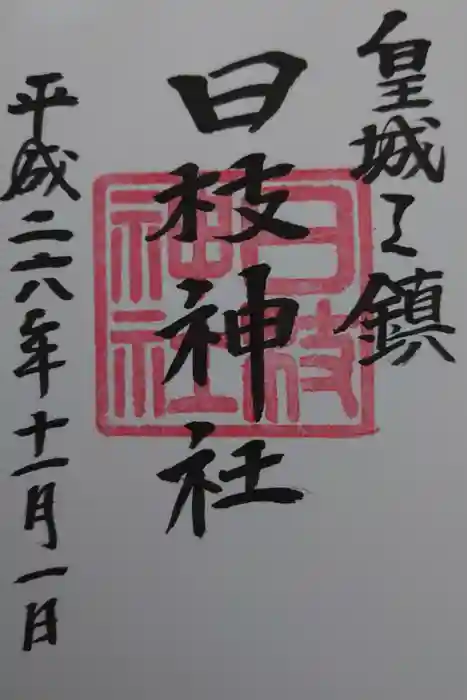 皇城之鎮
日枝神社
日枝神社
平成二十六年十一月一日